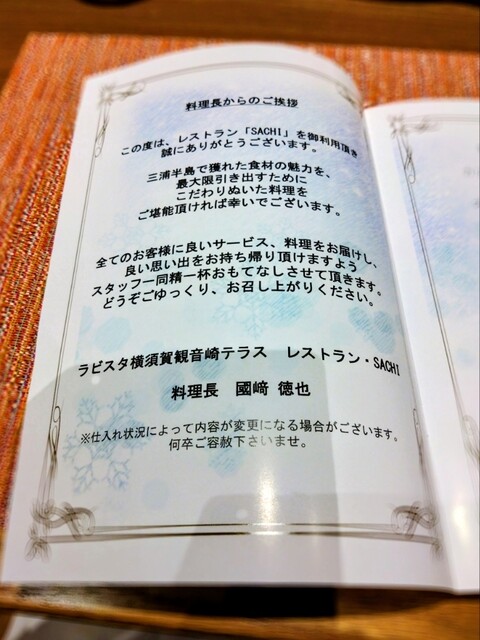 料理長からのご挨拶
この度は、レストラン「SACHI」を御利用頂き
誠にありがとうございます。
三浦半島で獲れた食材の魅力を、
最大限引き出すために
こだわりぬいた料理を
ご堪能頂ければ幸いでございます。
全てのお客様に良いサービス、料理をお届けし、
良い思い出をお持ち帰り頂けますよう
スタッフ一同精一杯おもてなしさせて頂きます。
どうぞごゆっくり、お召し上がりください。
ラビスタ横須賀観音崎テラス　レストラン・SACHI
料理長　國﨑 徳也
※仕入れ状況によって内容が変更になる場合がございます。
何卒ご容赦下さいませ。